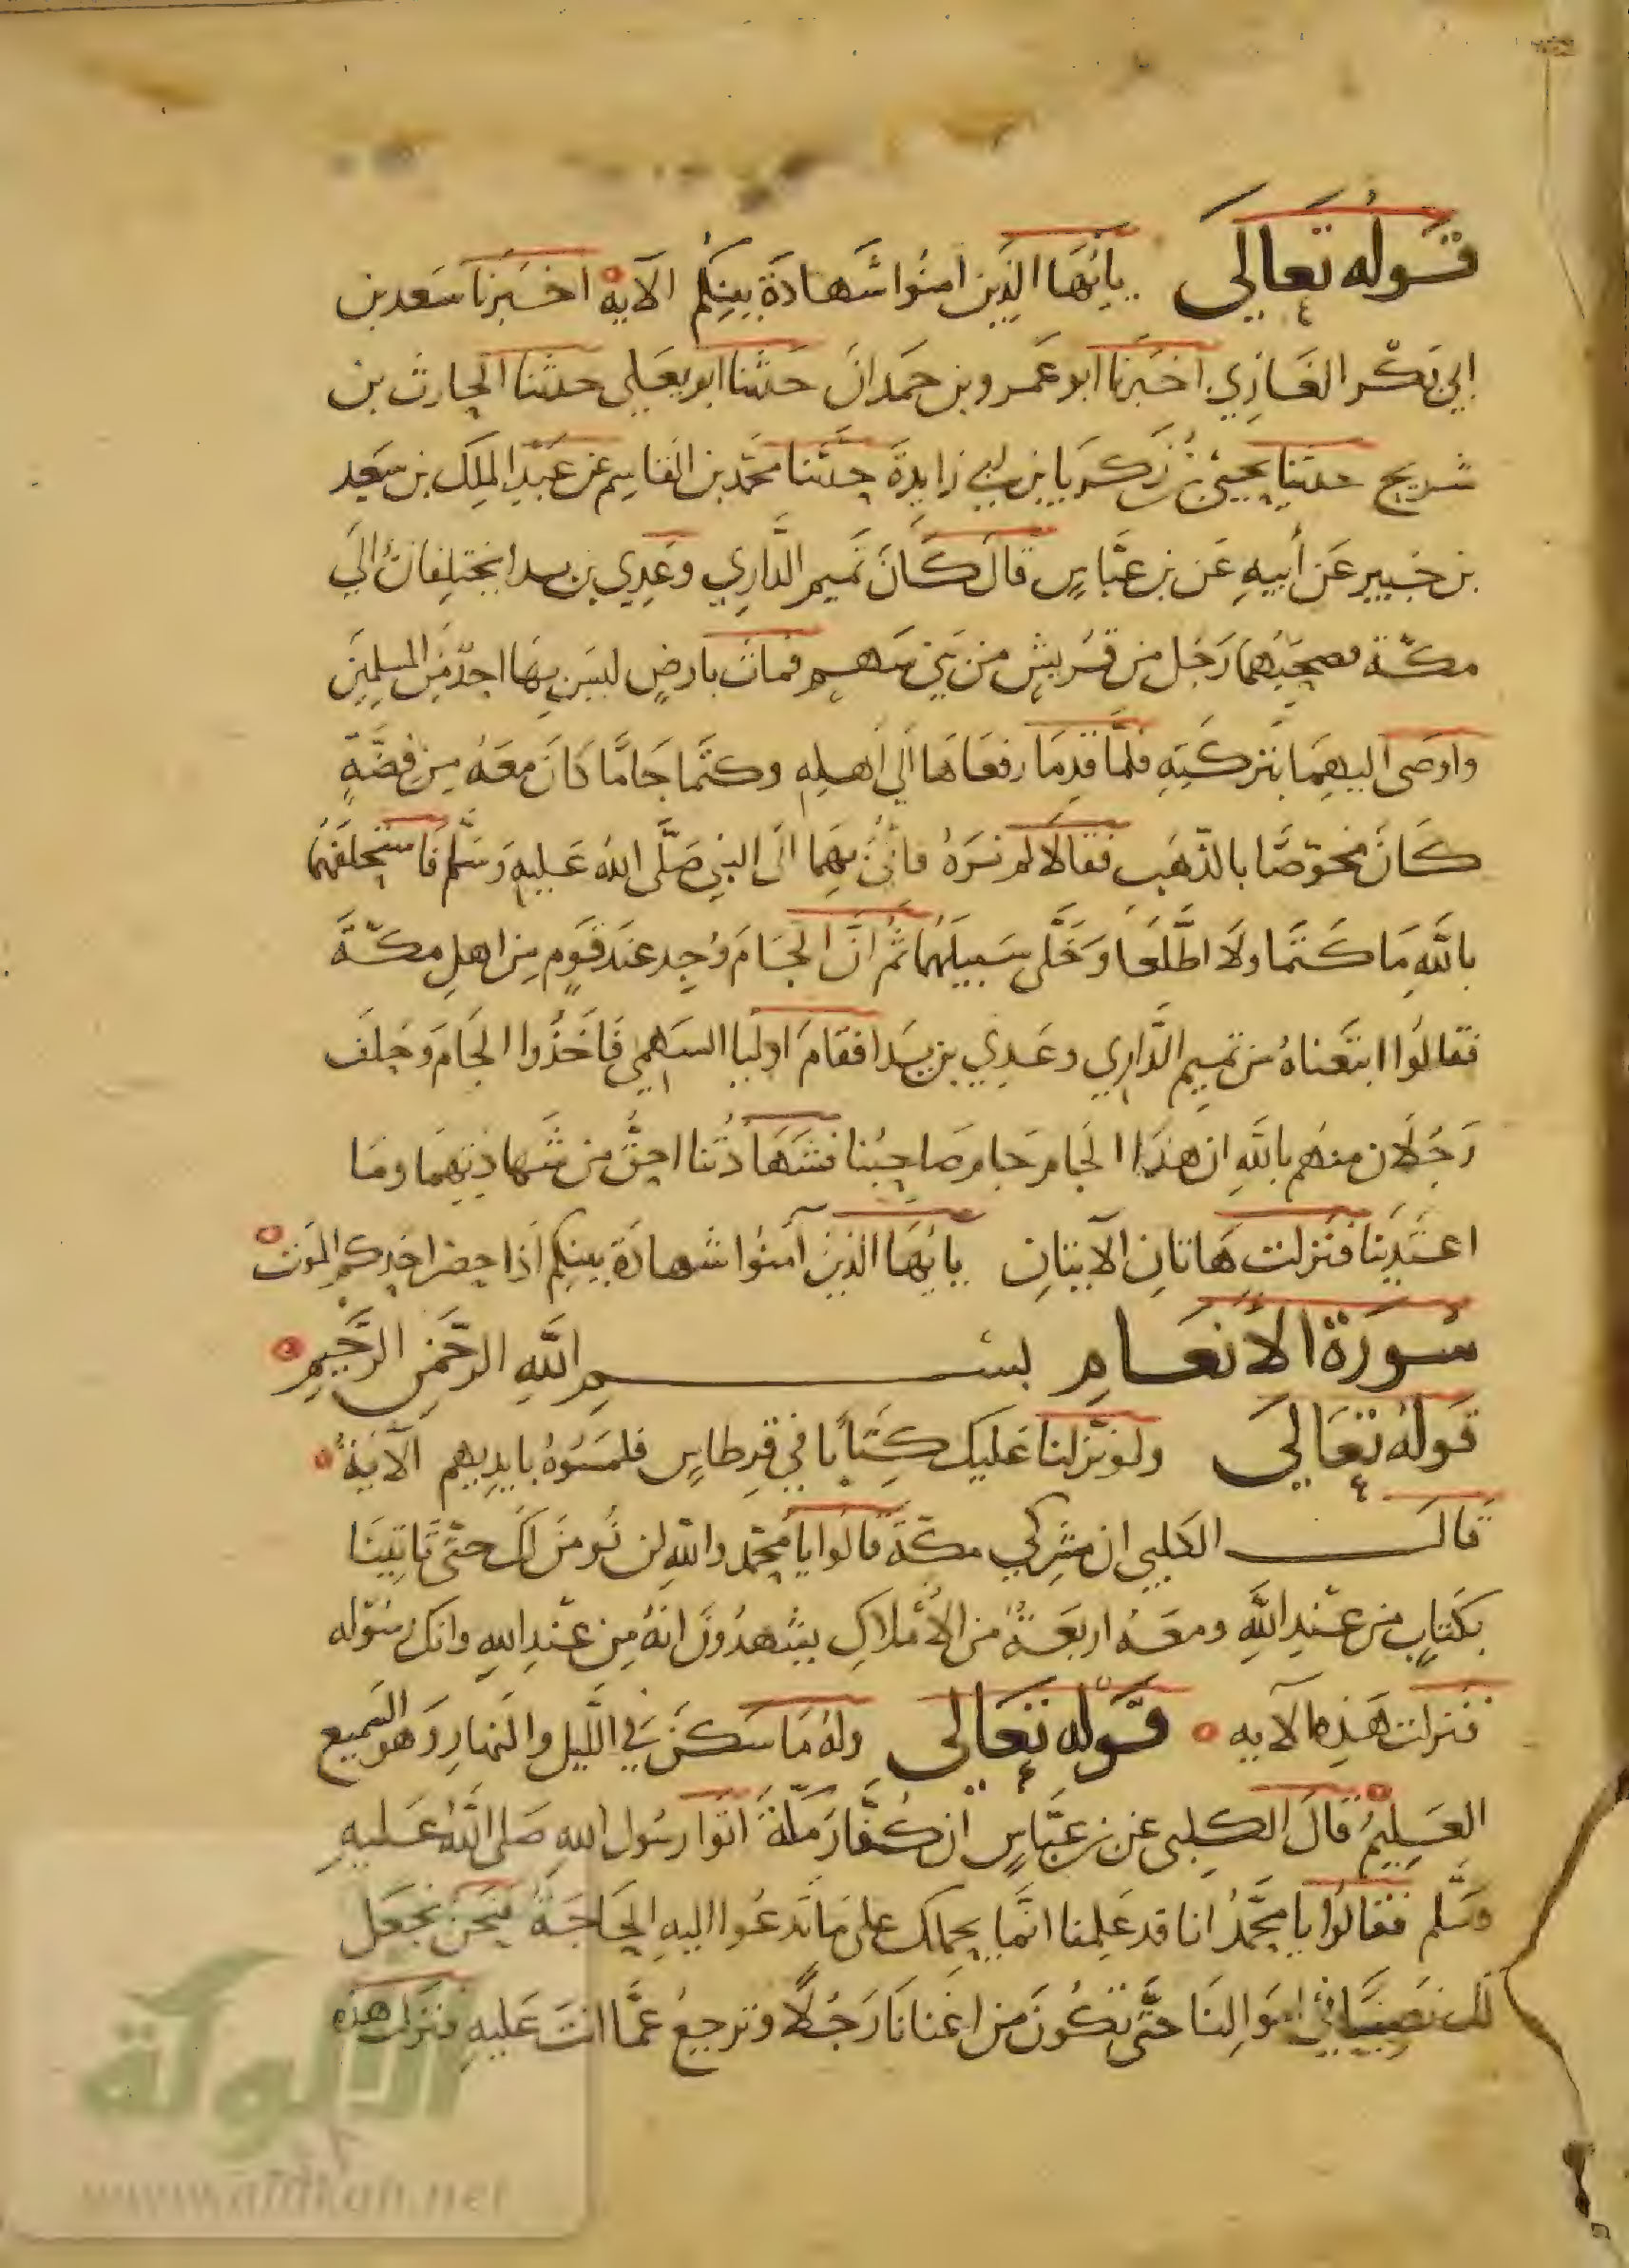 قوله تعالى يايها الذين امنوا شهادة بينكم الاية اخبرنا سعد بن
ابي بكر الغازي اخبرنا ابو عمرو بن حمدان حدثنا ابو يعلي حدثنا الحارث بن
شريح حدثنا يحيى بن زكريا بن ابي زايدة حدثنا محمد بن القاسم عن عبد الملك بن سعيد
بن جبير عن أبيه عن بن عباس قال كان تميم الداري وعدي بن بدا يختلفان الى
مكة فصحبهما رجل من قريش من بني سهم فمات بارض ليس بها احد من المسلمين
واوصى اليهما بتركته فلما قدما رفعاها الى أهله وكتما جاما كان معه من فضة
كان مخوصا بالذهب فقالا لم نره فأتي بهما الى النبي صلى الله عليه وسلم فاستحلفهما
بالله ما كتما ولا اطلعا وخلى سبيلهما ثم ان الجام وجد عند قوم من اهل مكة
فقالوا ابتعناه من تميم الداري وعدي بن بدا فقام اوليا السهمي فأخذوا الجام وحلف
رجلان منهم بالله ان هذا الجام جام صاحبنا فشهادتنا احق من شهادتهما وما
اعتدينا فنزلت هاتان الايتان يايها الذين آمنوا شهادة بينكم اذا حضر احدكم الموت
سورة الانعام بسم الله الرحمن الرحيم
قوله تعالى ولو نزلنا عليك كتابا في قرطاس فلمسوه بايديهم الآية
قال الكلبي ان مشركي مكة قالوا يا محمد والله لن نومن لك حتى تاتينا
بكتاب من عند الله ومعه اربعة من الأملاك يشهدون انه من عند الله وانك رسوله
فنزلت هذه الآية قوله تعالى وله ما سكن في الليل والنهار وهو السميع
العليم قال الكلبى عن بن عباس ان كفار مكة اتوا رسول الله صلى الله عليه
وسلم فقالوا يا محمد انا قد علمنا انما يحملك على ما تدعوا اليه الحاجة فنحن نجعل
لك نصيبا في اموالنا حتى تكون من اغنانا رجلا وترجع عما انت عليه فنزلت هذه
الألوكة
www.alukah.net